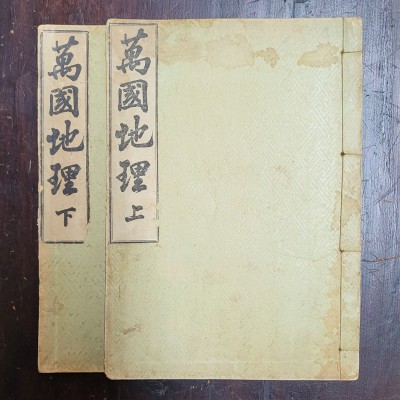 萬國地理上
萬國地理下